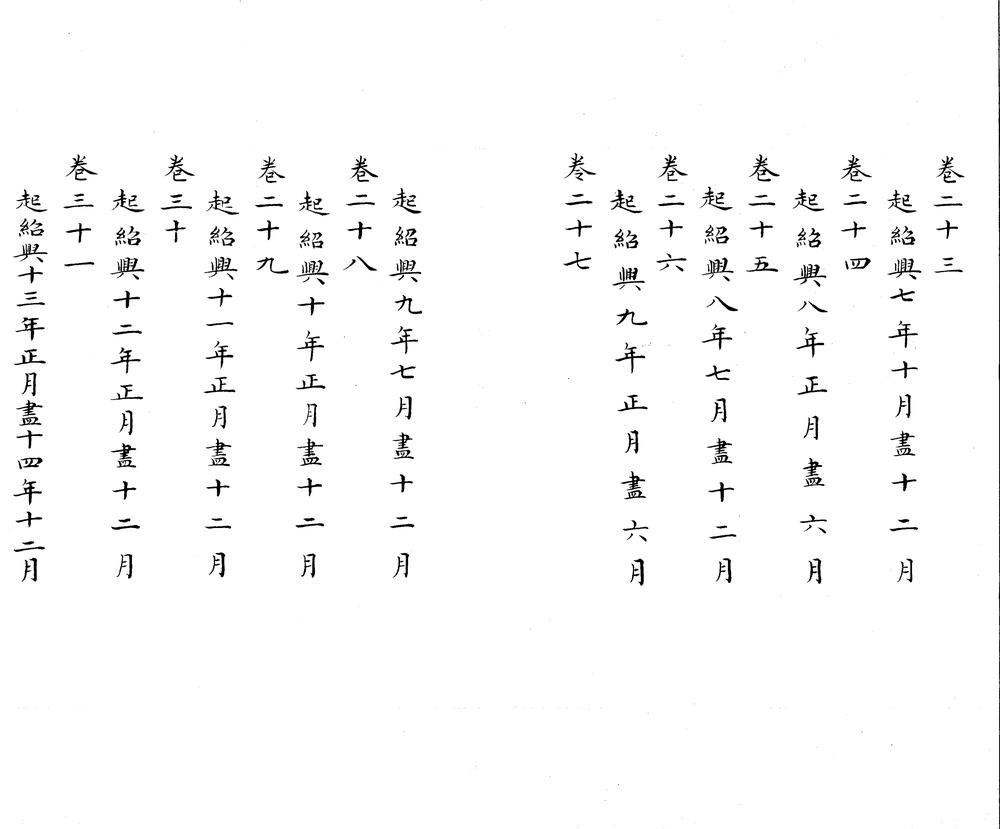 卷二十三
起紹興七年十月盡十二月
卷二十四
起紹興八年正月盡六月
卷二十五
起紹興八年七月盡十二月
卷二十六
起紹興九年正月盡六月
卷二十七
起紹興九年七月盡十二月
卷二十八
起紹興十年正月盡十二月
卷二十九
起紹興十一年正月盡十二月
卷三十
起紹興十二年正月盡十二月
卷三十一
起紹興十三年正月盡十四年十二月